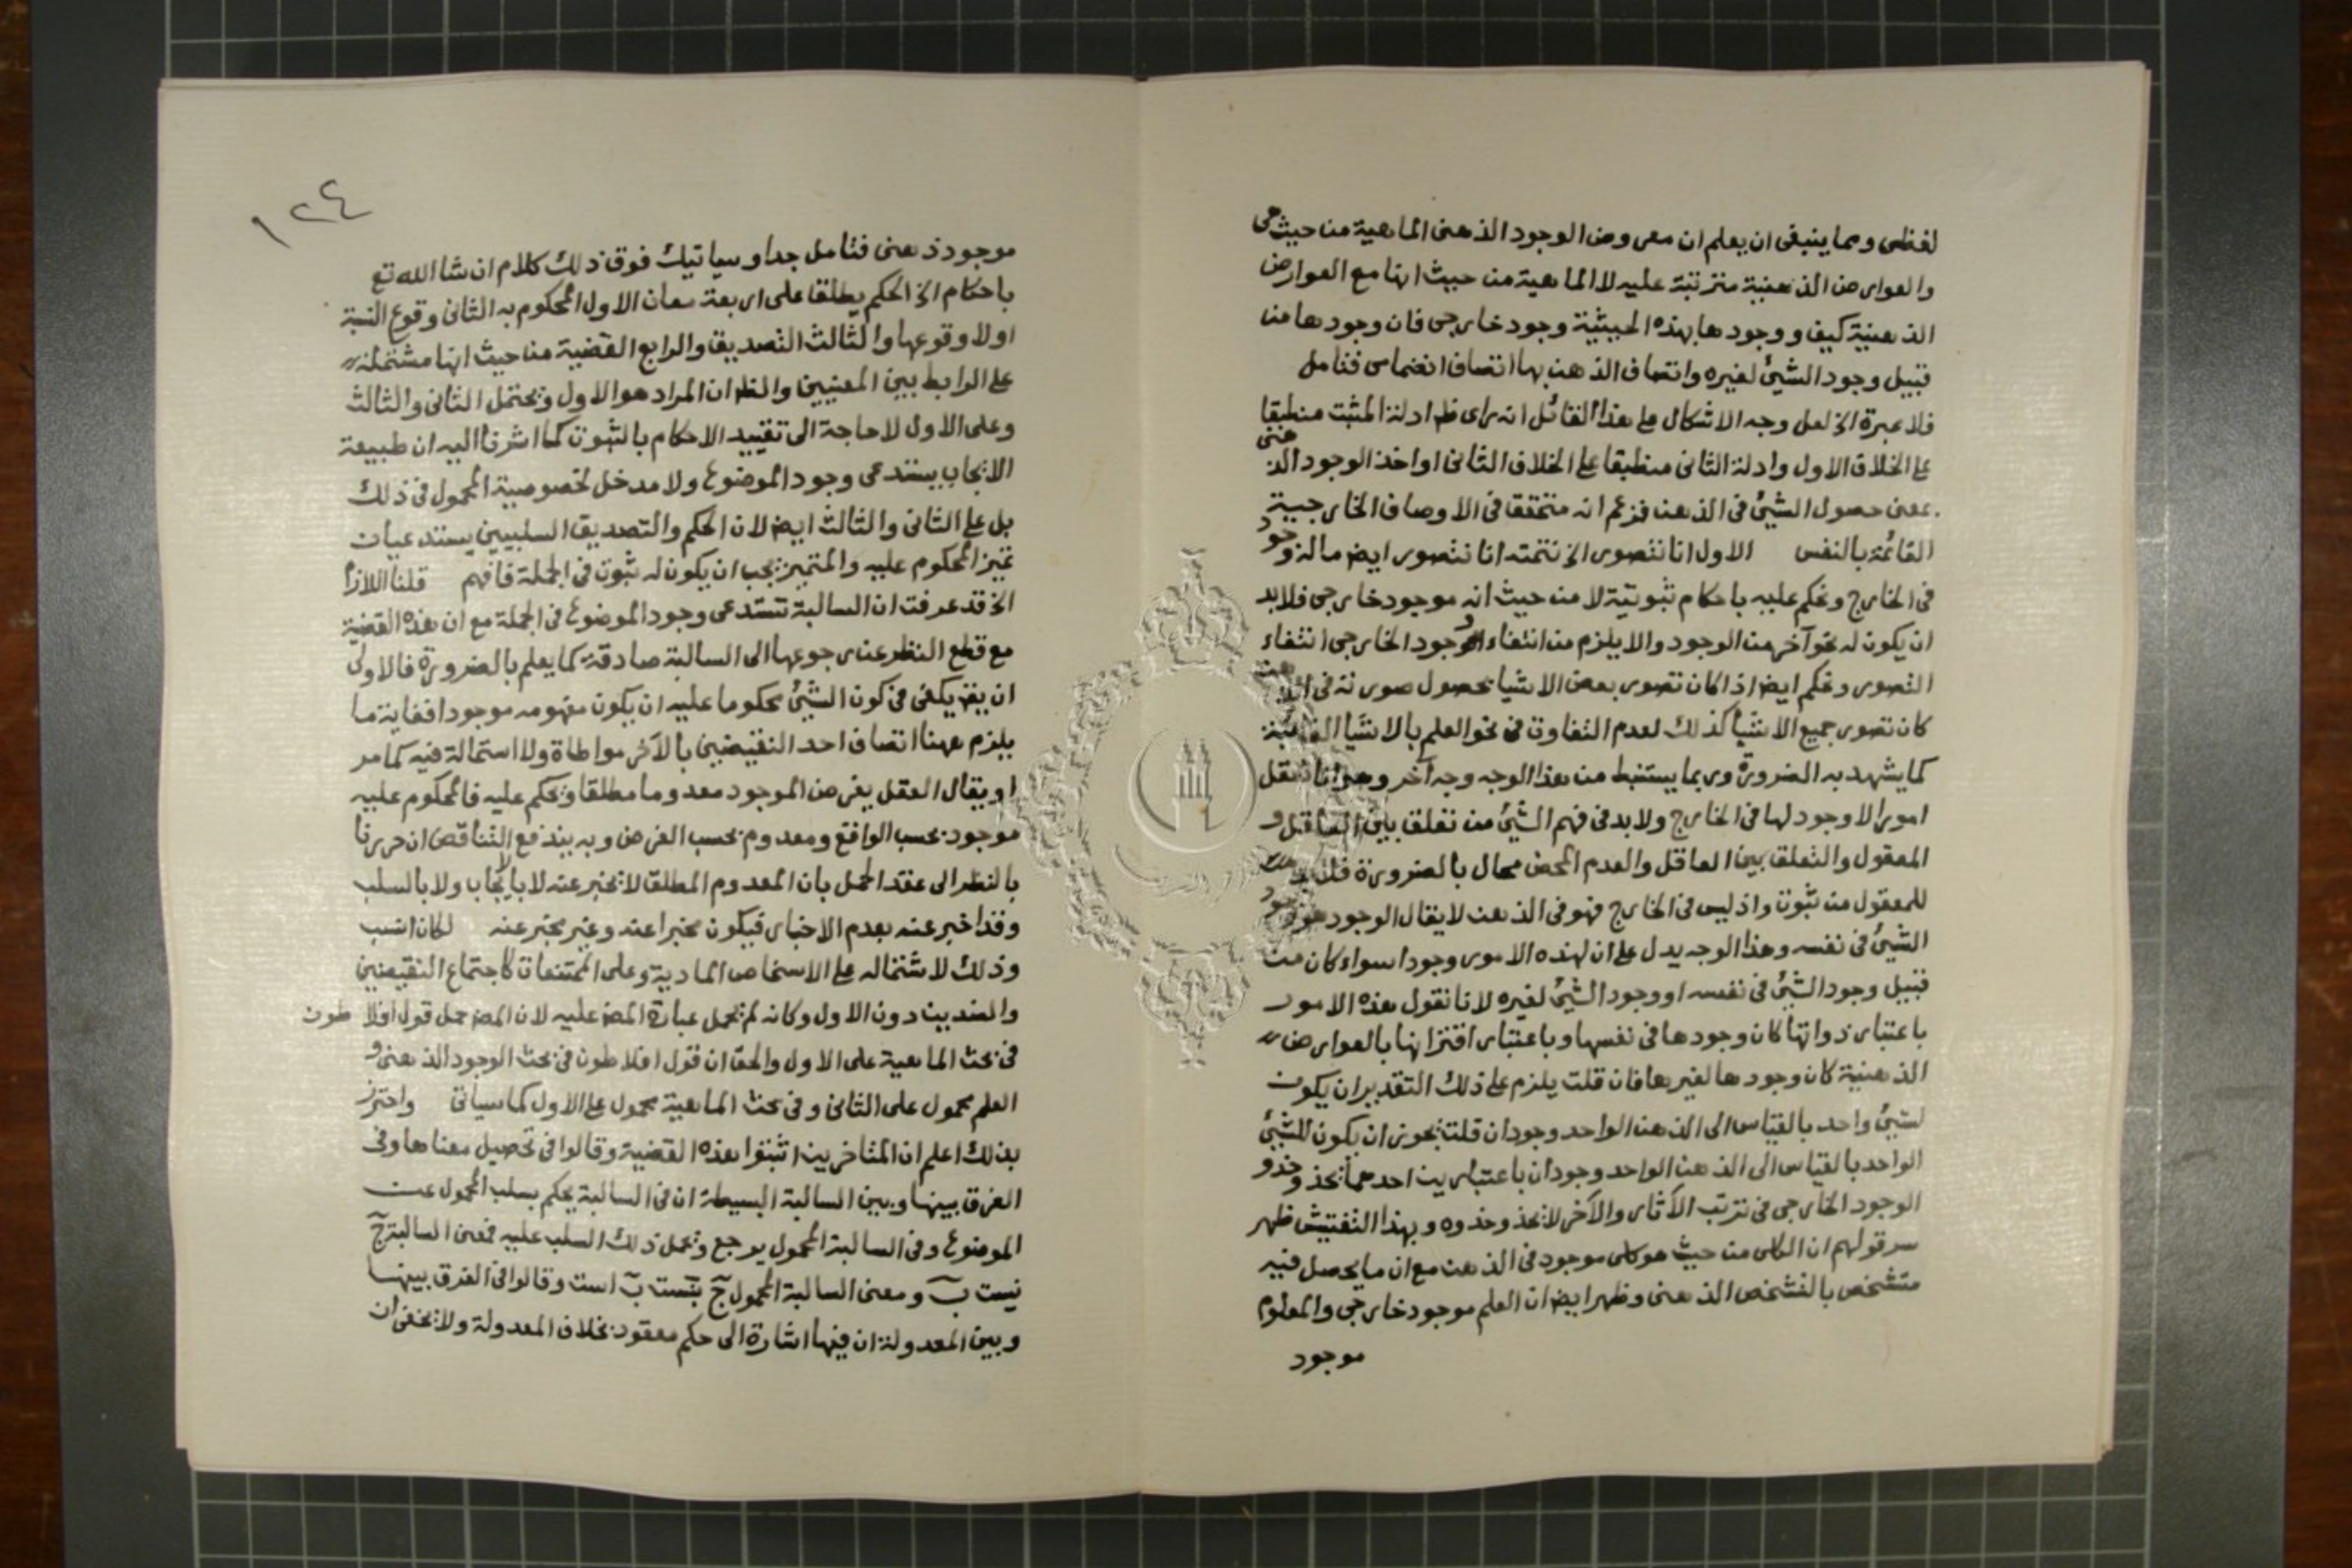 لفظى ومما ينبغى ان يعلم ان معروض الوجود الذهنى الماهية من حيث هى
والعوارض الذهنية مترتبة عليه لا الماهية من حيث انها مع العوارض
الذهنية كيف ووجودها بهذه الحيثية وجود خارجى فان وجودها من
قبيل وجود الشئ لغيره واتصاف الذهن بها اتصاف انضمامى فتامل
فلا عبرة الخ لعل وجه الاشكال على هذا القائل انه راى ظ ادلة المثبت منطبقا
على الخلاف الاول وادلة الثانى منطبقا على الخلاف الثانى او اخذ الوجود الذهنى
بمعنى حصول الشئ فى الذهن فزعم انه متحققا فى الاوصاف الخارجية
القائمة بالنفس الاول انا نتصور الخ تتمته انا نتصور ايض ما له وجود
فى الخارج ونحكم عليه باحكام ثبوتية لا من حيث انه موجود خارجى فلابد
ان يكون له نحو آخر من الوجود والا يلزم من انتفاء الوجود الخارجى انتفاء
التصور ونحكم ايض اذا كان تصور بعض الاشيا بحصول صورته فى الذهن
كان تصور جميع الاشيا كذلك لعدم التفاوت فى نحو العلم بالاشيا الغائبة
كما يشهد به الضرورة وربما يستنبط من هذا الوجه وجه آخر وهو انا نتعقل
امورا لا وجود لها فى الخارج ولابد فى فهم الشئ من تعلق بين العاقل و
المعقول والتعلق بين العاقل والعدم المحض محال بالضرورة فلابد
للمعقول من ثبوت واذ ليس فى الخارج فهو فى الذهن لا يقال الوجود هو وجود
الشئ فى نفسه وهذا الوجه يدل على ان لهذه الامور وجودا سواء كان من
قبيل وجود الشئ فى نفسه او وجود الشئ لغيره لانا نقول هذه الامور
باعتبار ذواتها كان وجودها فى نفسها وباعتبار اقترانها بالعوارض
الذهنية كان وجودها لغيرها فان قلت يلزم على ذلك التقدير ان يكون
لشئ واحد بالقياس الى الذهن الواحد وجودان قلت يجوز ان يكون للشئ
الواحد بالقياس الى الذهن الواحد وجودان باعتبارين احدهما يحذو حذو
الوجود الخارجى فى ترتب الآثار والآخر لا يحذو حذوه وبهذا التفتيش ظهر
سر قولهم ان الكلى من حيث هو كلى موجود فى الذهن مع ان ما يحصل فيه
متشخص بالتشخص الذهنى وظهر ايض ان العلم موجود خارجى والمعلوم
موجود
١٢٤
موجود ذهنى فتامل جدا وسياتيك فوق ذلك كلام ان شا الله تع
باحكام الخ الحكم يطلق على اربعة معان الاول المحكوم به الثانى وقوع النسبة
او لا وقوعها والثالث التصديق والرابع القضية من حيث انها مشتملة
على الرابط بين المعنيين والظ ان المراد هو الاول ويحتمل الثانى والثالث
وعلى الاول لا حاجة الى تقييد الاحكام بالثبوت كما اشرنا اليه ان طبيعة
الايجاب يستدعى وجود الموضوع ولا مدخل لخصوصية المحمول فى ذلك
بل على الثانى والثالث ايض لان الحكم والتصديق السلبيين يستدعيان
تميز المحكوم عليه والمتميز يجب ان يكون له ثبوت فى الجملة فافهم قلنا اللازم
الخ قد عرفت ان السالبة تستدعى وجود الموضوع فى الجملة مع ان هذه القضية
مع قطع النظر عن رجوعها الى السالبة صادقة كما يعلم بالضرورة فالاولى
ان يقال يكفى فى كون الشئ محكوما عليه ان يكون مفهومه موجودا فغاية ما
يلزم ههنا اتصاف احد النقيضين بالآخر مواطاة ولا استحالة فيه كما مر
او يقال العقل يفرض الموجود معدوما مطلقا ويحكم عليه فالمحكوم عليه
موجود بحسب الواقع ومعدوم بحسب الفرض وبه يندفع التناقض ان حررنا
بالنظر الى عقد الحمل بان المعدوم المطلق لا يخبر عنه لا بالايجاب ولا بالسلب
وقد اخبر عنه بعدم الاخبار فيكون مخبرا عنه وغير مخبر عنه لكان انسب
وذلك لاشتماله على الاشخاص المادية وعلى الممتنعات كاجتماع النقيضين
والضدين دون الاول وكانه لم يحمل عبارة المص عليه لان المص حمل قول افلاطون
فى بحث الماهية على الاول والحق ان قول افلاطون فى بحث الوجود الذهنى و
العلم محمول على الثانى وفى بحث الماهية محمول على الاول كما سياتى واحترز
بذلك اعلم ان المتاخرين اثبتوا هذه القضية وقالوا فى تحصيل معناها وفى
الفرق بينها وبين السالبة البسيطة ان فى السالبة يحكم بسلب المحمول عن
الموضوع وفى السالبة المحمول يرجع ويحمل ذلك السلب عليه فمعنى السالبة ج
نيست ب ومعنى السالبة المحمول ج نيست ب است وقالوا فى الفرق بينها
وبين المعدولة ان فيها اشارة الى حكم معقود بخلاف المعدولة ولا يخفى ان